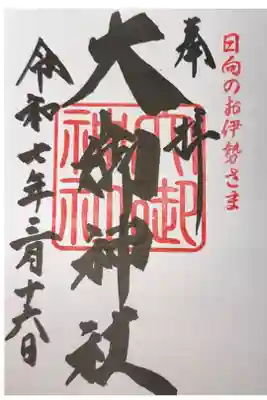 日向のお伊勢さま
奉拝
大御神社
大御神社
令和七年三月十六日